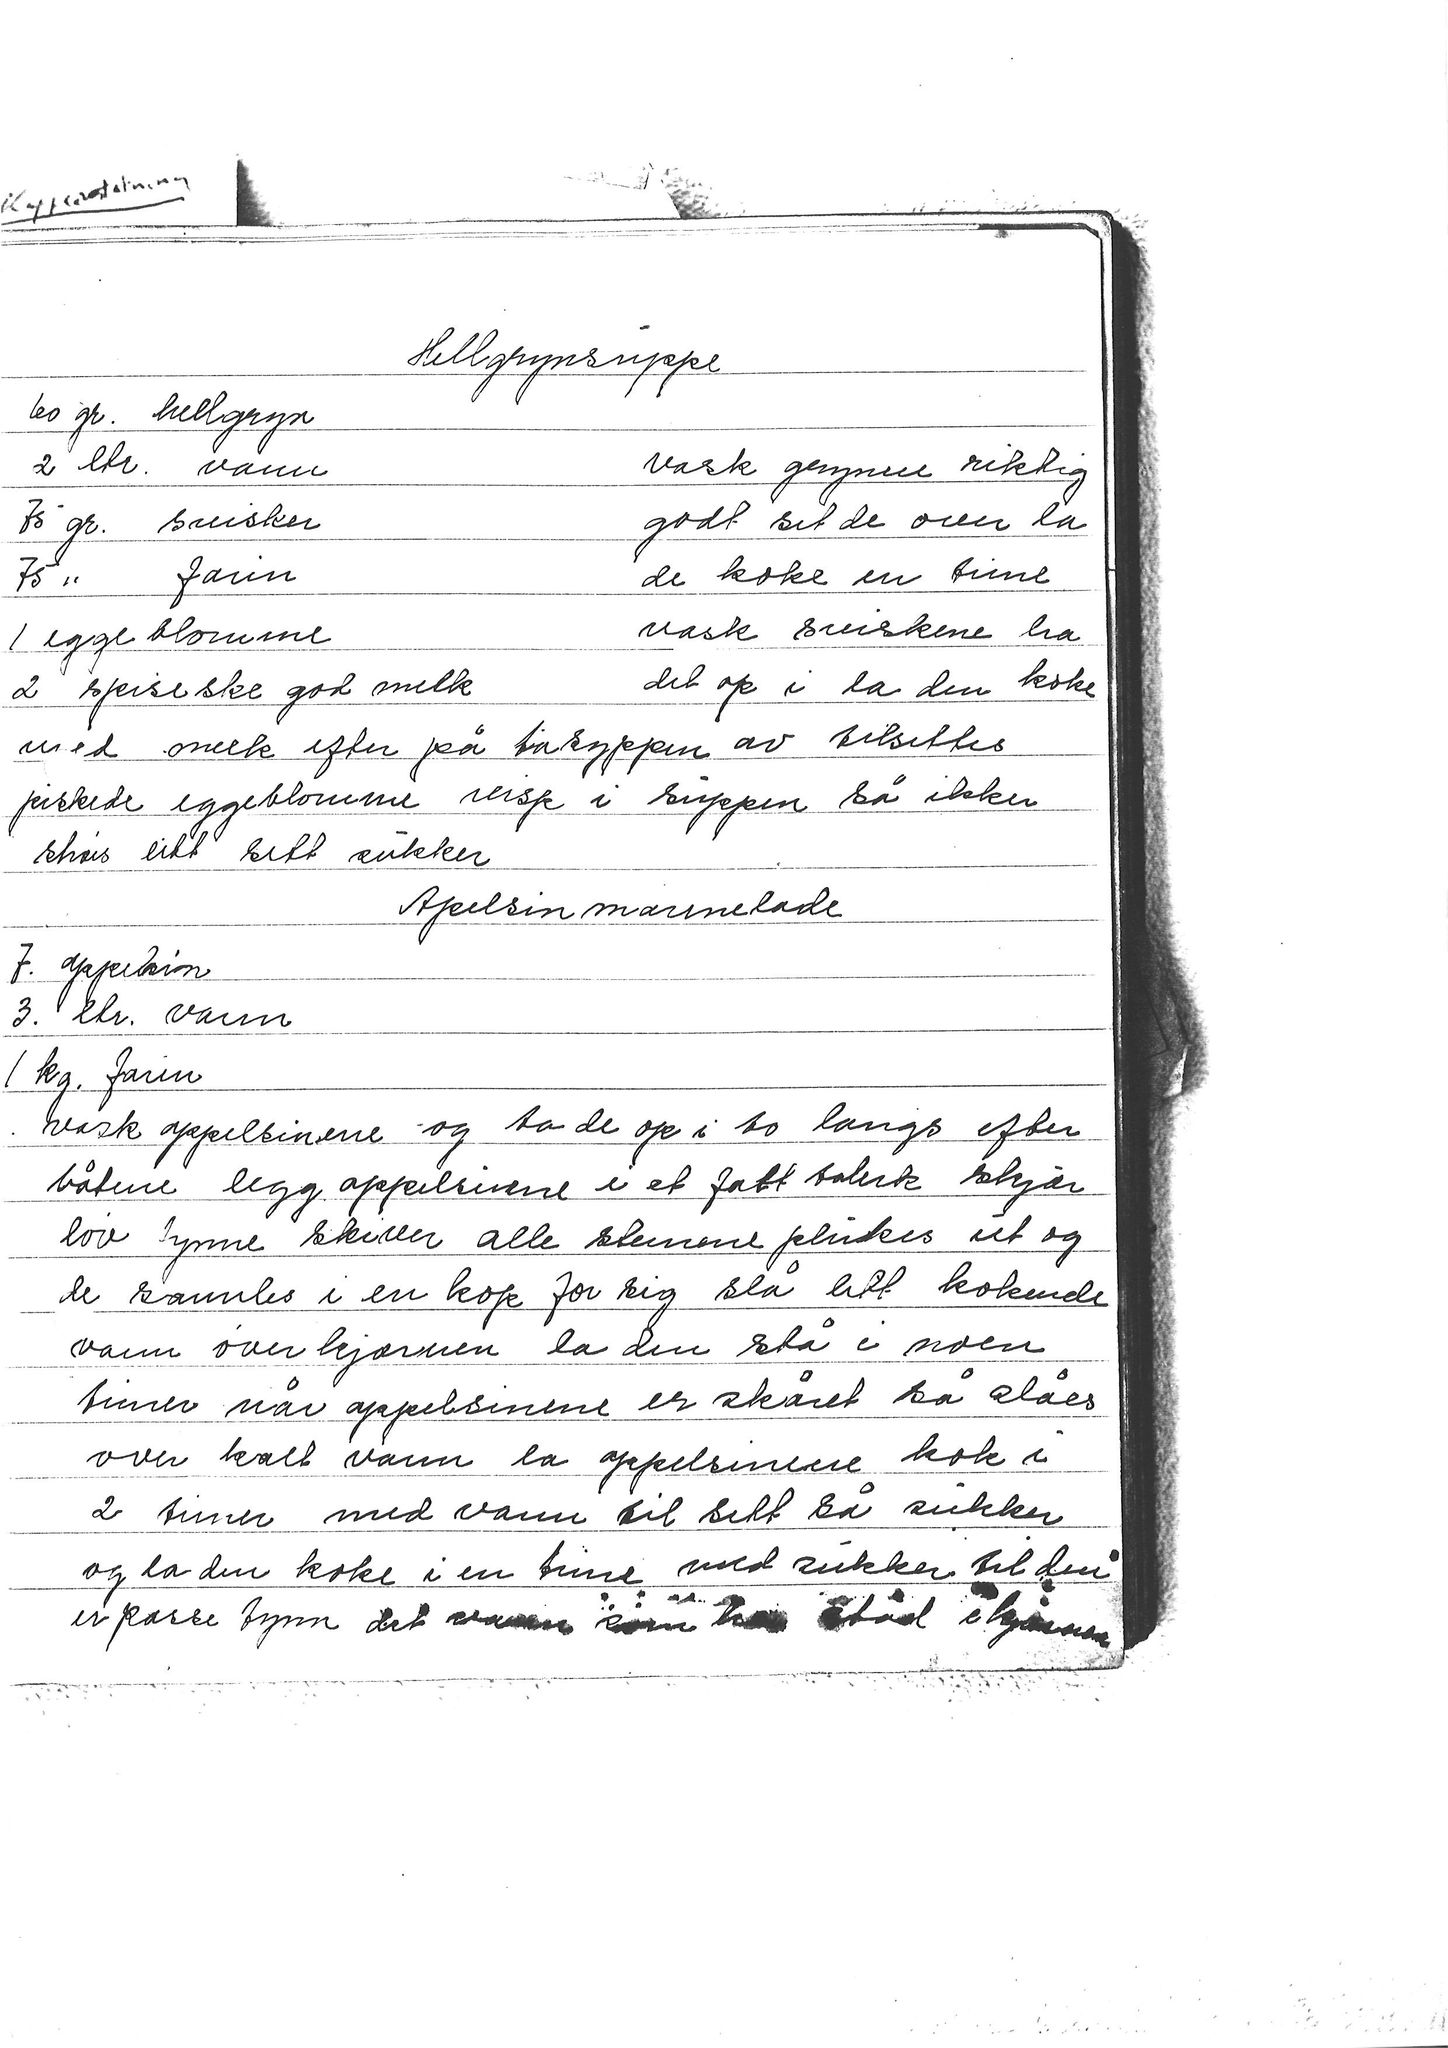 Hellgrynsuppe
60 gr. hellgryn
2 ltr. vann
75 gr. svisker
75 " farin
1 eggeblomme
2 spiseske god melk
vask grynene riktig
godt set de over la
de koke en time
vask sviskene ha
det op i la den koke
med melk efter på ta suppen av tilsettes
piskede eggeblomme visp i suppen så ikker
litt sett sukker
Apelsin marmelade
7. appelsin
3. ltr. vann
1 kg. farin
vask appelsinene og ta de op i to langs efter
båtene legg appelsinene i et fatt talerk skjær
løv tynne skiver alle stenene plukes ut og
de samles i en kop for sig slå litt kokende
vann over kjærnen la den stå i noen
timer når appelsinene er skåret så slåes
over kalt vann la appelsinene kok i
2 timer med vann til sett så sukker
og la den koke i en time med sukker til den
er passe tynn det vann som ha ståd i kjærnen